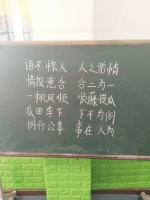 语不惊人 人之常情
情投意合 合二为一
一帆风顺 顺藤摸瓜
瓜田李下 下不为例
例行公事 事在人为